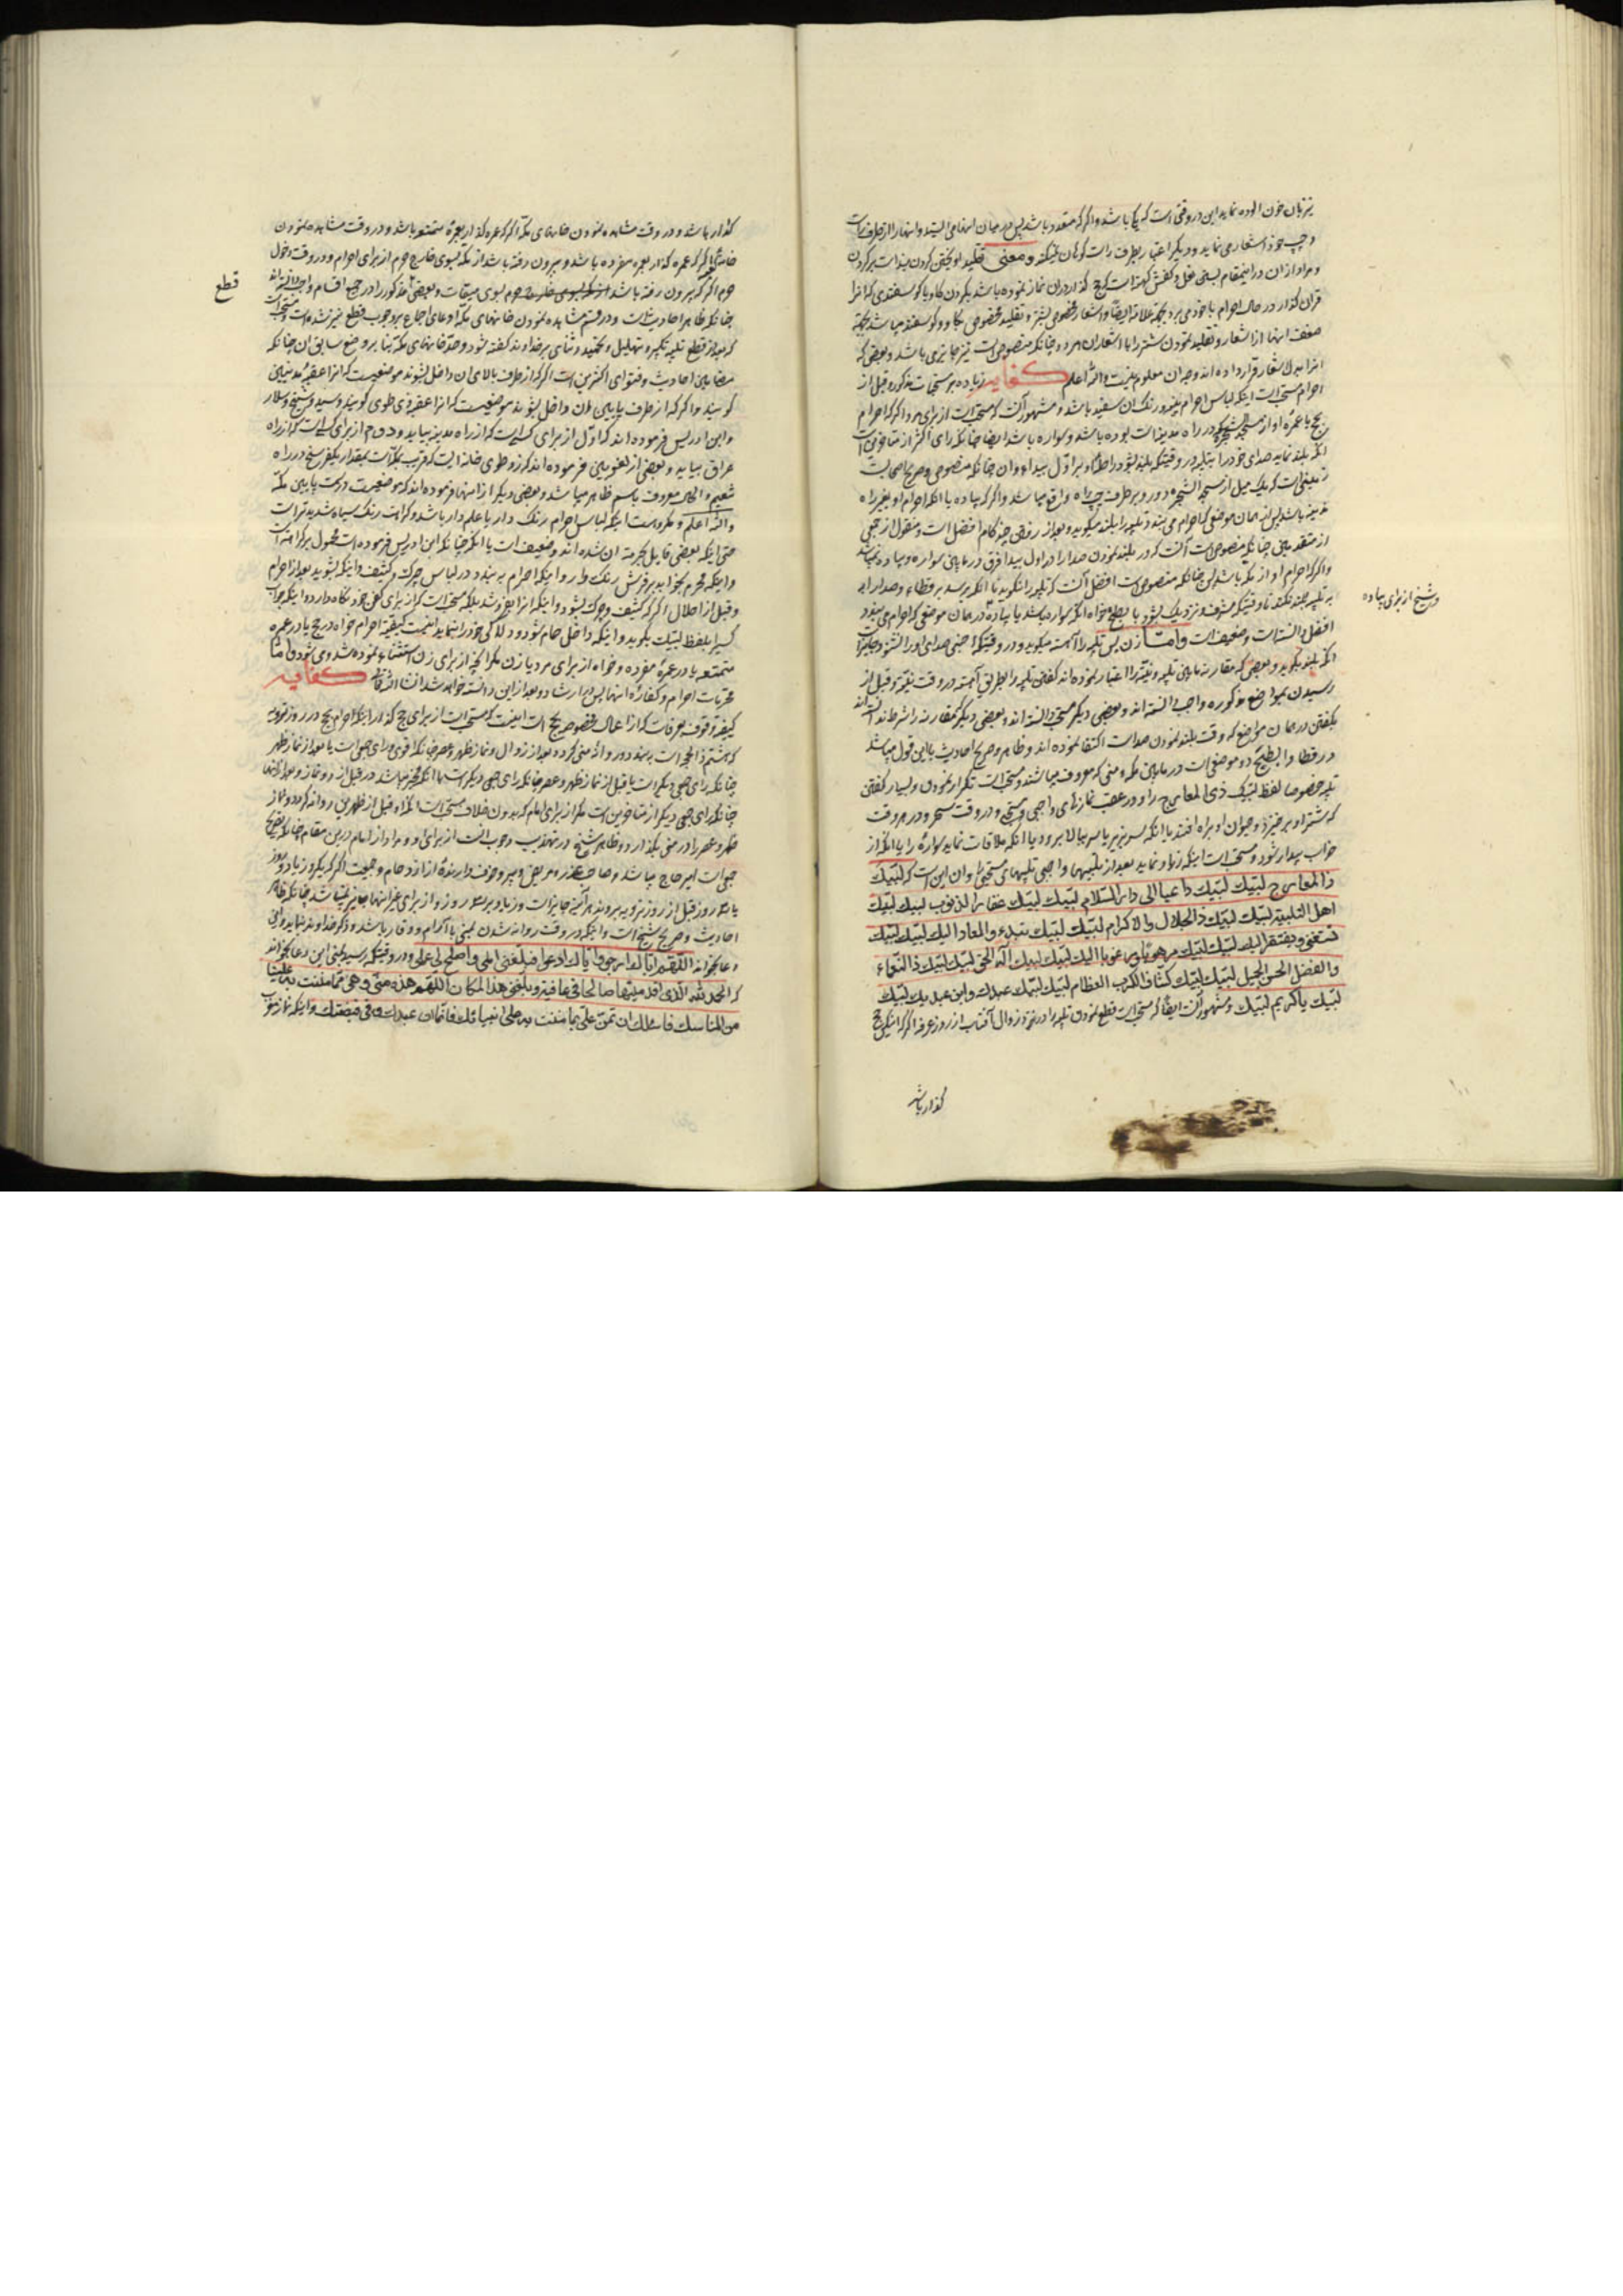 نیز بان خون الوده نماید این در وقتی است که یکی باشد و اگر که متعدد باشد پس در میان انها می ایستد و انها را از طرف راست
و چپ خود اشعار می نماید و دیگر اعتبار بطرف راست کوهان نمیکند و معنی تقلید اویختن
و مراد از ان در اینمقام بستن نعل و کفش کهنه است که حج گذار در ان نماز نموده باشد بگردن گاو یا گوسفندی که انرا
قران گذار در حال احرام با خود می برد بجهة علامة ایضا و اشعار مخصوص بشتر و تقلید مخصوص بگاو و گوسفند میباشد بجهة
ضعف انها از اشعار و تقلید نمودن شتر را با اشعار ان چنانکه منصوص است نیز جایز می باشد و بعضی که
انرا بدل اشعار قرار داده اند وجه ان معلوم نیست والله اعلم کفایه زیاده بر مستحبات مذکوره قبل از
احرام مستحب است اینکه لباس احرام پنبه و رنگ ان سفید باشد و مشهور آنست که مستحب است از برای مرد اگر که احرام
حج یا عمرۀ او از مسجد شجره در راه مدینه است بوده باشد و سواره باشد ایضا چنانکه رای اکثر از متاخرین است
انکه بلند نماید صدای خود را بتلبیه در وقتیکه بلند شود راحلۀ او بر اول بیدا و ان چنانکه منصوص و صریح اصحاب است
زمینی است که یک میل از مسجد الشجره دور و بر طرف چپ راه واقع میباشد و اگر که پیاده یا انکه احرام او بغیر راه
مدینه باشد پس از همان موضعی که احرام می بندد تلبیه را بلند میگوید و بعد از رفتن چند گام افضل است و منقول از جمعی
از متقدمین چنانکه منصوص است آنست که در بلند نمودن صدا را در اول بیدا فرق در مابین سواره و پیاده نمیباشد
و اگر که احرام او از مکه باشد پس چنانکه منصوص است افضل آنست که تلبیه را نگوید تا انکه برسد برقطاء و صدا را
به تلبیه بلند نکند تا وقتیکه مشرف و نزدیک بشود با بطح خواه انکه سواره باشد یا پیاده در همان موضعی که احرام می بندد
و شیخ از برای پیاده
افضل دانسته است و ضعیف است و اما زن پس تلبیه را آهسته میگوید و در وقتیکه اجنبی صدای او را نشنود جایز است
انکه بلند بگوید و بعضی که مقارنۀ مابین تلبیه و نیّة را اعتبار نموده اند گفتن تلبیه را بطریق آهسته در وقت نیّة و قبل از
رسیدن بمواضع مذکوره واجب دانسته اند و بعضی دیگر مستحب دانسته اند و بعضی دیگر مقارنه را شرط ندانسته اند
بگفتن در همان مواضع که وقت بلند نمودن صداست اکتفا نموده اند و ظاهر و صریح احادیث با این قول میباشد
و رقطا و ابطح دو موضعی است در مابین مکه و منی که معروف میباشند و مستحب است تکرار نمودن و بسیار گفتن
تلبیه خصوصا لفظ لبیک ذی المعارج را و در عقب نمازهای واجبی و مستحبی و در وقت سحر و در هر وقت
که شتر او برخیزد و حیوان او براه افتد یا انکه بسر بزیر یا سر ببالا برود یا انکه ملاقات نماید سواره را یا انکه از
خواب بیدار شود و مستحب است اینکه زیاد نماید بعد از تلبیهها واجبی تلبیهای مستحبی را و ان این است که لبیک
ذا المعارج لبیک لبیک داعیا الی دار السلام لبیک لبیک غفار الذنوب لبیک لبیک
اهل التلبیة لبیک لبیک ذا الجلال والاکرام لبیک لبیک تبدء والمعاد الیک لبیک لبیک
تستغنی ویفتقر الیک لبیک لبیک مرهوبا ومرغوبا الیک لبیک لبیک اله الحق لبیک لبیک ذا النعماء
والفضل الحسن الجمیل لبیک لبیک کشاف الکرب العظام لبیک لبیک عبدک وابن عبدیک لبیک
لبیک یا کریم لبیک و مشهور آنست ایضا که مستحب است قطع نمودن تلبیه را در نزد زوال آفتاب از روز عرفه اگر که اینکس حج
گذار باشد
گذار باشد و در وقت مشاهده نمودن خانهای مکه اگر که عمره گذار بعمرۀ متمتع باشد و در وقت مشاهده نمودن
خانۀ کعبه اگر که عمره گذار بعمره مفرده باشد و بیرون رفته باشد از مکه بسوی خارج حرم از برای احرام و در وقت دخول
حرم اگر که بیرون رفته باشد از مکه بسوی خارج حرم بسوی میقات و بعضی مذکور را در جمیع اقسام واجب دانسته اند
قطع
چنانکه ظاهر احادیث است و در قسم مشاهده نمودن خانهای مکه ادعای اجماع بر وجوب قطع نیز شده است و مستحب است
که بعد از قطع تلبیه تکبیر و تهلیل و تحمید و ثنای بر خداوند گفته شود و حد خانهای مکه بنا بر وضع سابق ان چنانکه
مضامین احادیث و فتوای اکثرین است اگر که از طرف بالای ان داخل بشوند موضعیست که انرا عقبۀ مدنیین
گویند و اگر که از طرف پایین ان داخل بشوند موضعیست که انرا عقبۀ ذی طوی گویند و سید و شیخ و سلار
و ابن ادریس فرموده اند که اول از برای کسی است که از راه مدینه بیاید و دوم از برای کسی است که از راه
عراق بیاید و بعضی از لغویین فرموده اند که ذو طوی خانه ایست که قریب بمکه است بمقدار یکفرسخ در راه
تنعیم و الحال معروف باسم ظاهر میباشد و بعضی دیگر از انها فرموده اند که موضعیست در سمت پایین مکه
والله اعلم و مکروه است اینکه لباس احرام رنگ دار یا علم دار باشد و کراهت رنگ سیاه شدیدتر است
حتی اینکه بعضی قایل بحرمة ان شده اند و ضعیف است یا انکه چنانکه ابن ادریس فرموده است محمول بر کراهة است
و اینکه محرم بخوابد بر فرش رنگ دار و اینکه احرام به بندد در لباس چرک و کثیف و اینکه بشوید بعد از احرام
و قبل از احلال اگر که کثیف و چرک بشود و اینکه انرا بفروشد بلکه مستحب است که از برای کفن خود نگاه دارد و اینکه جواب
کسی را بلفظ لبیک بگوید و اینکه داخل حمام شود و دلاکی خود را بنماید اینست کیفیة احرام خواه در حج یا در عمره
متمتعه یا در عمرۀ مفرده و خواه از برای مرد یا زن مگر انچه از برای زن استثناء نموده شد و می شود و اما
محرمات احرام و کفارۀ انها پس بعد از این دانسته خواهد شد انشاءالله تعالی کفایه
کیفیة وقوف بعرفات که از اعمال مخصوصه حج است اینست که مستحب است از برای حج گذار اینکه احرام حج در روز ترویه
که هشتم ذالحجه است به بندد و روانۀ منی گردد بعد از زوال و نماز ظهر و عصر چنانکه اقوی و رای جمعی است یا بعد از نماز ظهر
چنانکه رای جمعی دیگر است یا قبل از نماز ظهر و عصر چنانکه رای جمعی دیگر است یا انکه مخیر میباشد در قبل از دو نماز و بعد از انها
چنانکه رای جمعی دیگر از متاخرین است مگر از برای امام که بدون خلاف مستحب است انکه او قبل از ظهرین روانه گردد و نماز
ظهر و عصر را در منی بگذارد و ظاهر شیخ در تهذیب وجوب انست از برای او و مراد از امام در این مقام چنانکه تصریح
جمعی است امیر حاج میباشد و صاحب عذر و مریض و پیر و خوف دارندۀ از ازدحام و جمعیت اگر که یکروز یا دو روز
یا سه روز قبل از روز ترویه بروند هر آینه جایز است و زیاده بر سه روز و از برای غیر انها جایز نمیباشد چنانکه ظاهر
احادیث و صریح شیخ است و اینکه در وقت روانه شدن بمنی با آرام و وقار باشد و ذکر خداوند بنماید و این
دعا بخواند اللهم ایاک ارجو وایاک ادعوا فبلغنی املی واصلح لی عملی و در وقتیکه رسید بمنی این دعا بخواند
که الحمدلله الذی اقدمنیها صالحا فی عافیة وبلغنی هذا المکان اللهم هذه منی وهی مما مننت به علینا
من المناسک فاسئلک ان تمن علی بما مننت به علی انبیائک فانما انا عبدک وفی قبضتک و اینکه نماز مغرب